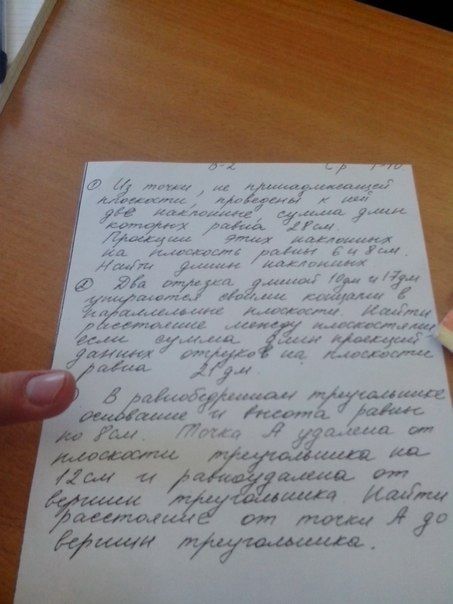 В-2 Ср 1-10
① Из точки, не принадлежащей
плоскости, проведены к ней
две наклонные, сумма длин
которых равна 28см.
Проекции этих наклонных
на плоскость равны 6 и 8см.
Найти длины наклонных.
② Два отрезка длиной 10дм и 17дм
упираются своими концами в
параллельные плоскости. Найти
расстояние между плоскостями
если сумма длин проекций
данных отрезков на плоскости
равна 21дм.
В равнобедренном треугольнике
основание и высота равны
по 8см. Точка А удалена от
плоскости треугольника на
12см и равноудалена от
вершин треугольника. Найти
расстояние от точки А до
вершин треугольника.